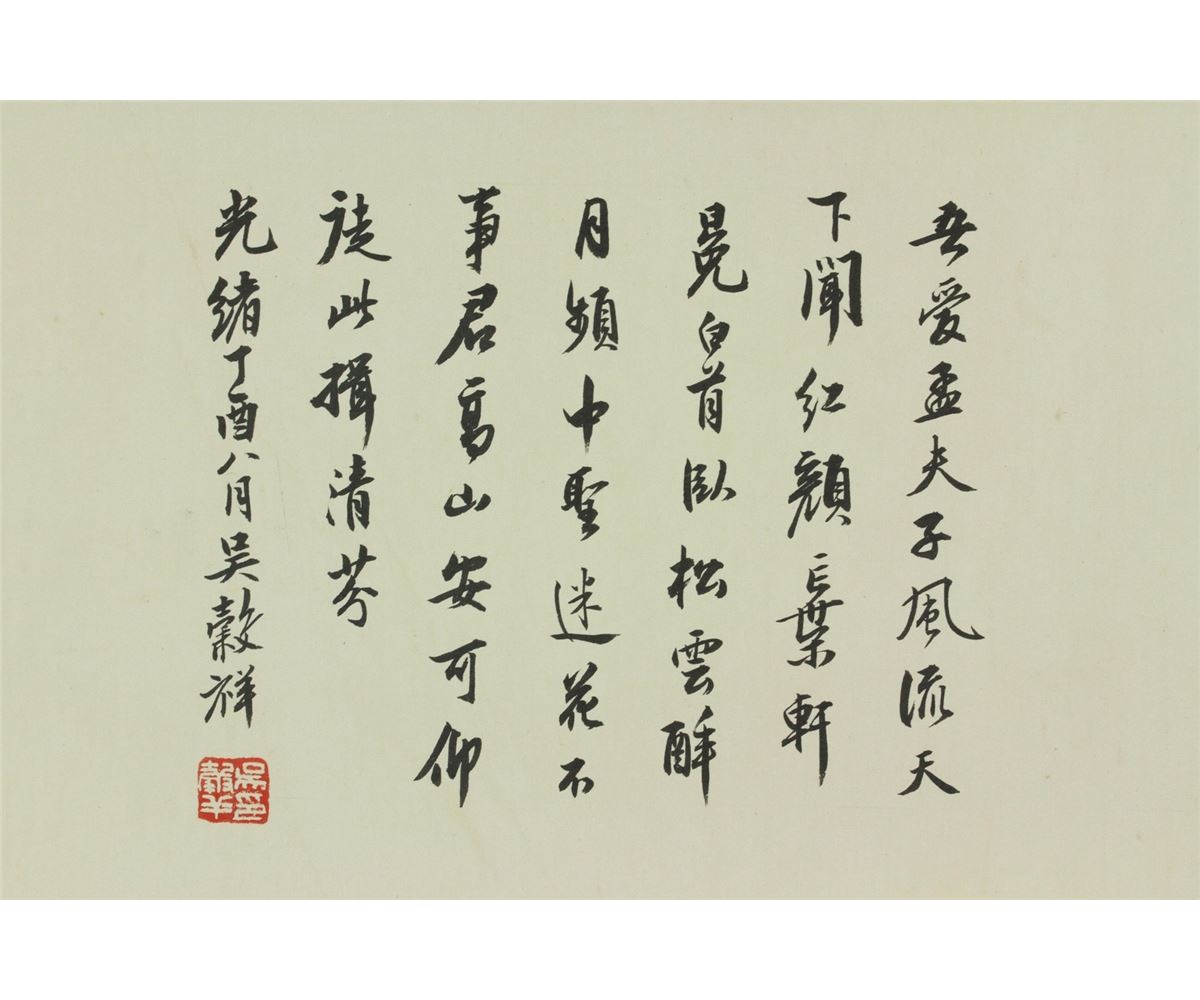 吾愛孟夫子風流天
下聞紅顏棄軒
冕白首臥松雲醉
月頻中聖迷花不
事君高山安可仰
徒此揖清芬
光緒丁酉八月吳穀祥